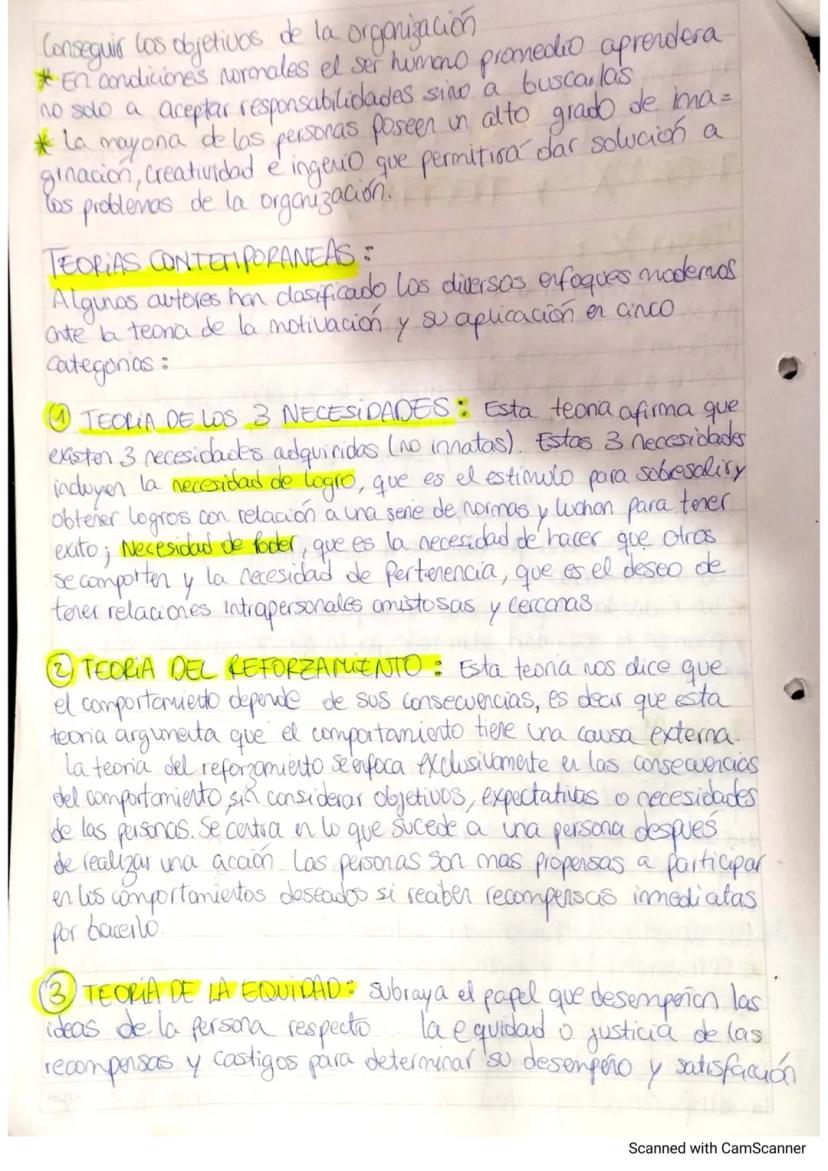 Conseguir los objetivos de la organización
* En condiciones normales el ser humano promedio aprendera
no solo a aceptar responsabilidades sino a buscarlas
* La mayoria de las personas poseen un alto grado de ima=
ginación, creatividad e ingenio que permitirá dar solución a
los problemas de la organización.
TEORIAS CONTEMPORANEAS:
Algunos autores han clasificado los diversos enfoques modernos
ante la teoria de la motivación y su aplicación en cinco
categorias:
① TEORIA DE LOS 3 NECESIDADES: Esta teoria afirma que
existen 3 necesidades adquiridas (no innatas). Estas 3 necesidades
incluyen la necesidad de logro, que es el estimulo para sobresalir y
obtener logros con relación a una serie de normas y luchan para tener
exito; Necesidad de Poder, que es la necesidad de hacer que otros
se comporten y la necesidad de Pertenencia, que es el deseo de
tener relaciones intrapersonales amistosas y cercanas
② TEORIA DEL REFORZAMIENTO: Esta teoria nos dice que
el comportamiento depende de sus consecuencias, es decir que esta
teoria argumenta que el comportamiento tiene una causa externa.
La teoria del reforzamiento se enfoca exclusivamente en las consecuencias
del comportamiento, sin considerar objetivos, expectativas o necesidades
de las personas. Se centra en lo que sucede a una persona después
de realizar una acción Las personas son mas propensas a participar
en los comportamientos deseados si reciben recompensas inmediatas
por hacerlo.
③ TEORIA DE LA EQUIDAD: Subraya el papel que desempeñan las
ideas de la persona respecto la equidad o justicia de las
recompensas y castigos para determinar su desempeño y satisfacción
Scanned with CamScanner